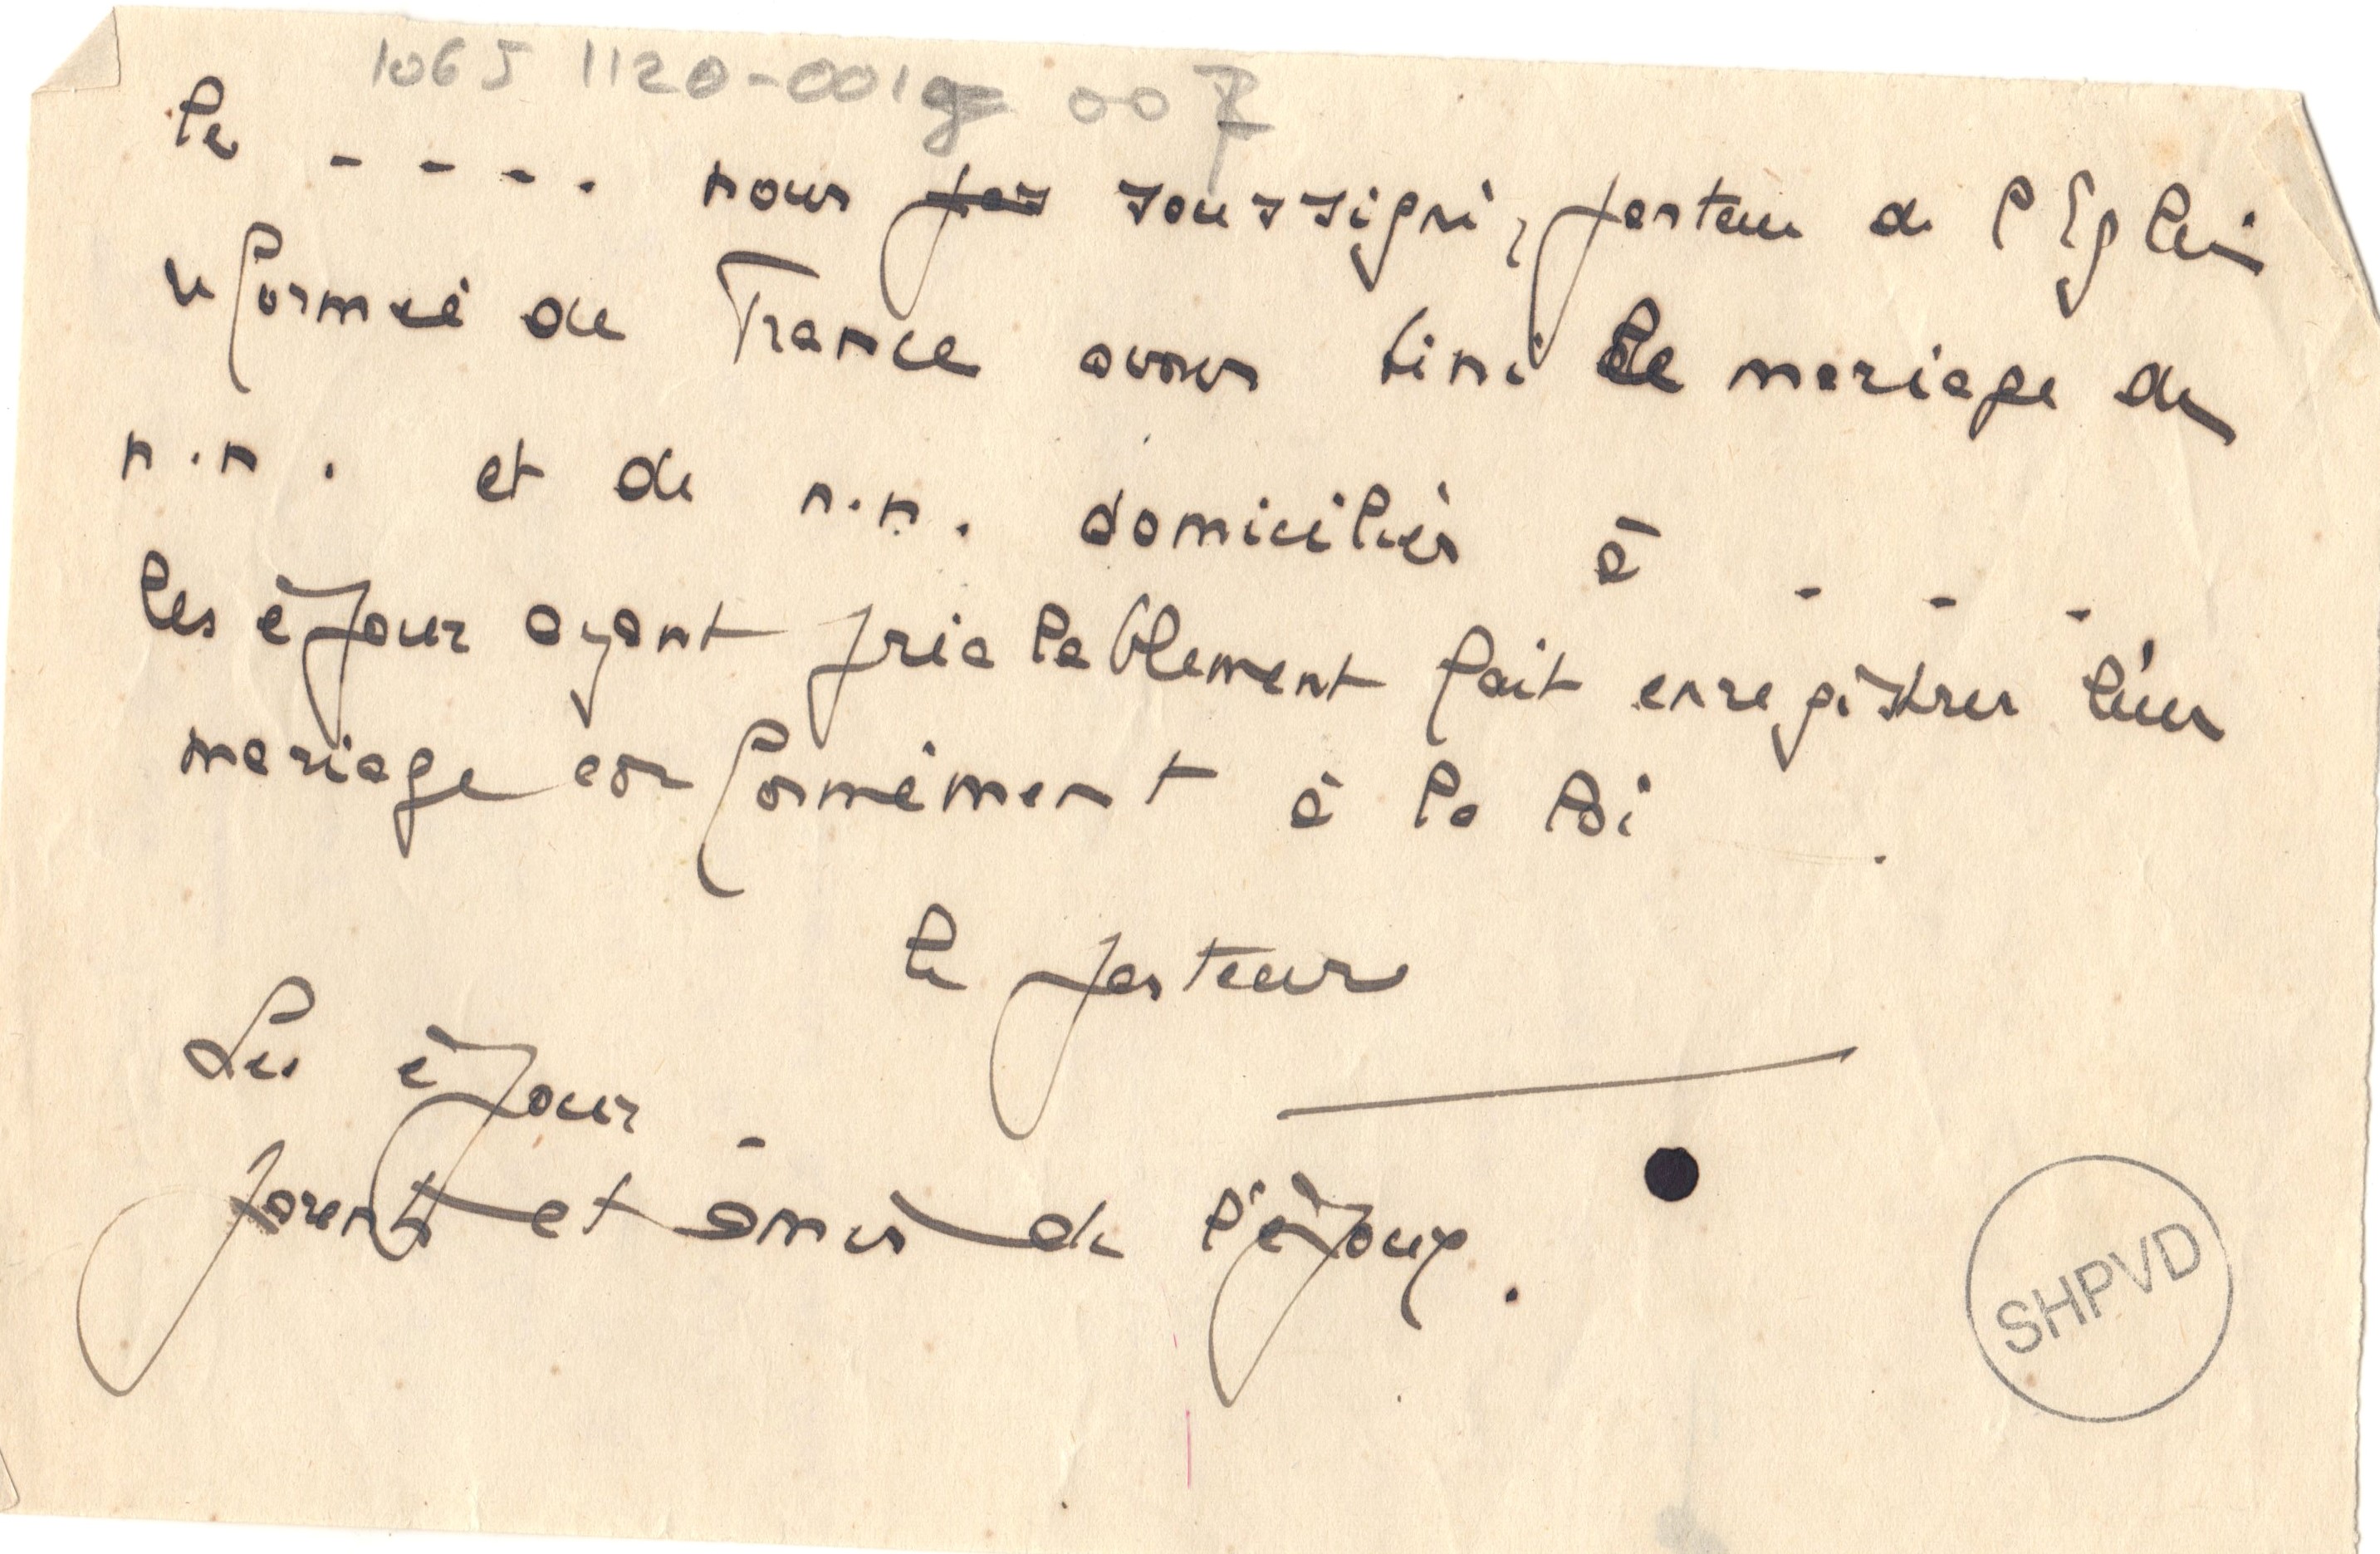 1065 1120-001 007
le - - - . nous pas soussigné, pasteur de l'Eglise
reformée de France avons béni le mariage de
n.n. et de n.n. domiciliés à - - -
les époux ayant préalablement fait enregistrer leur
mariage conformément à la loi.
le pasteur
Les époux -
parents et amis de l'époux.
SHPVD